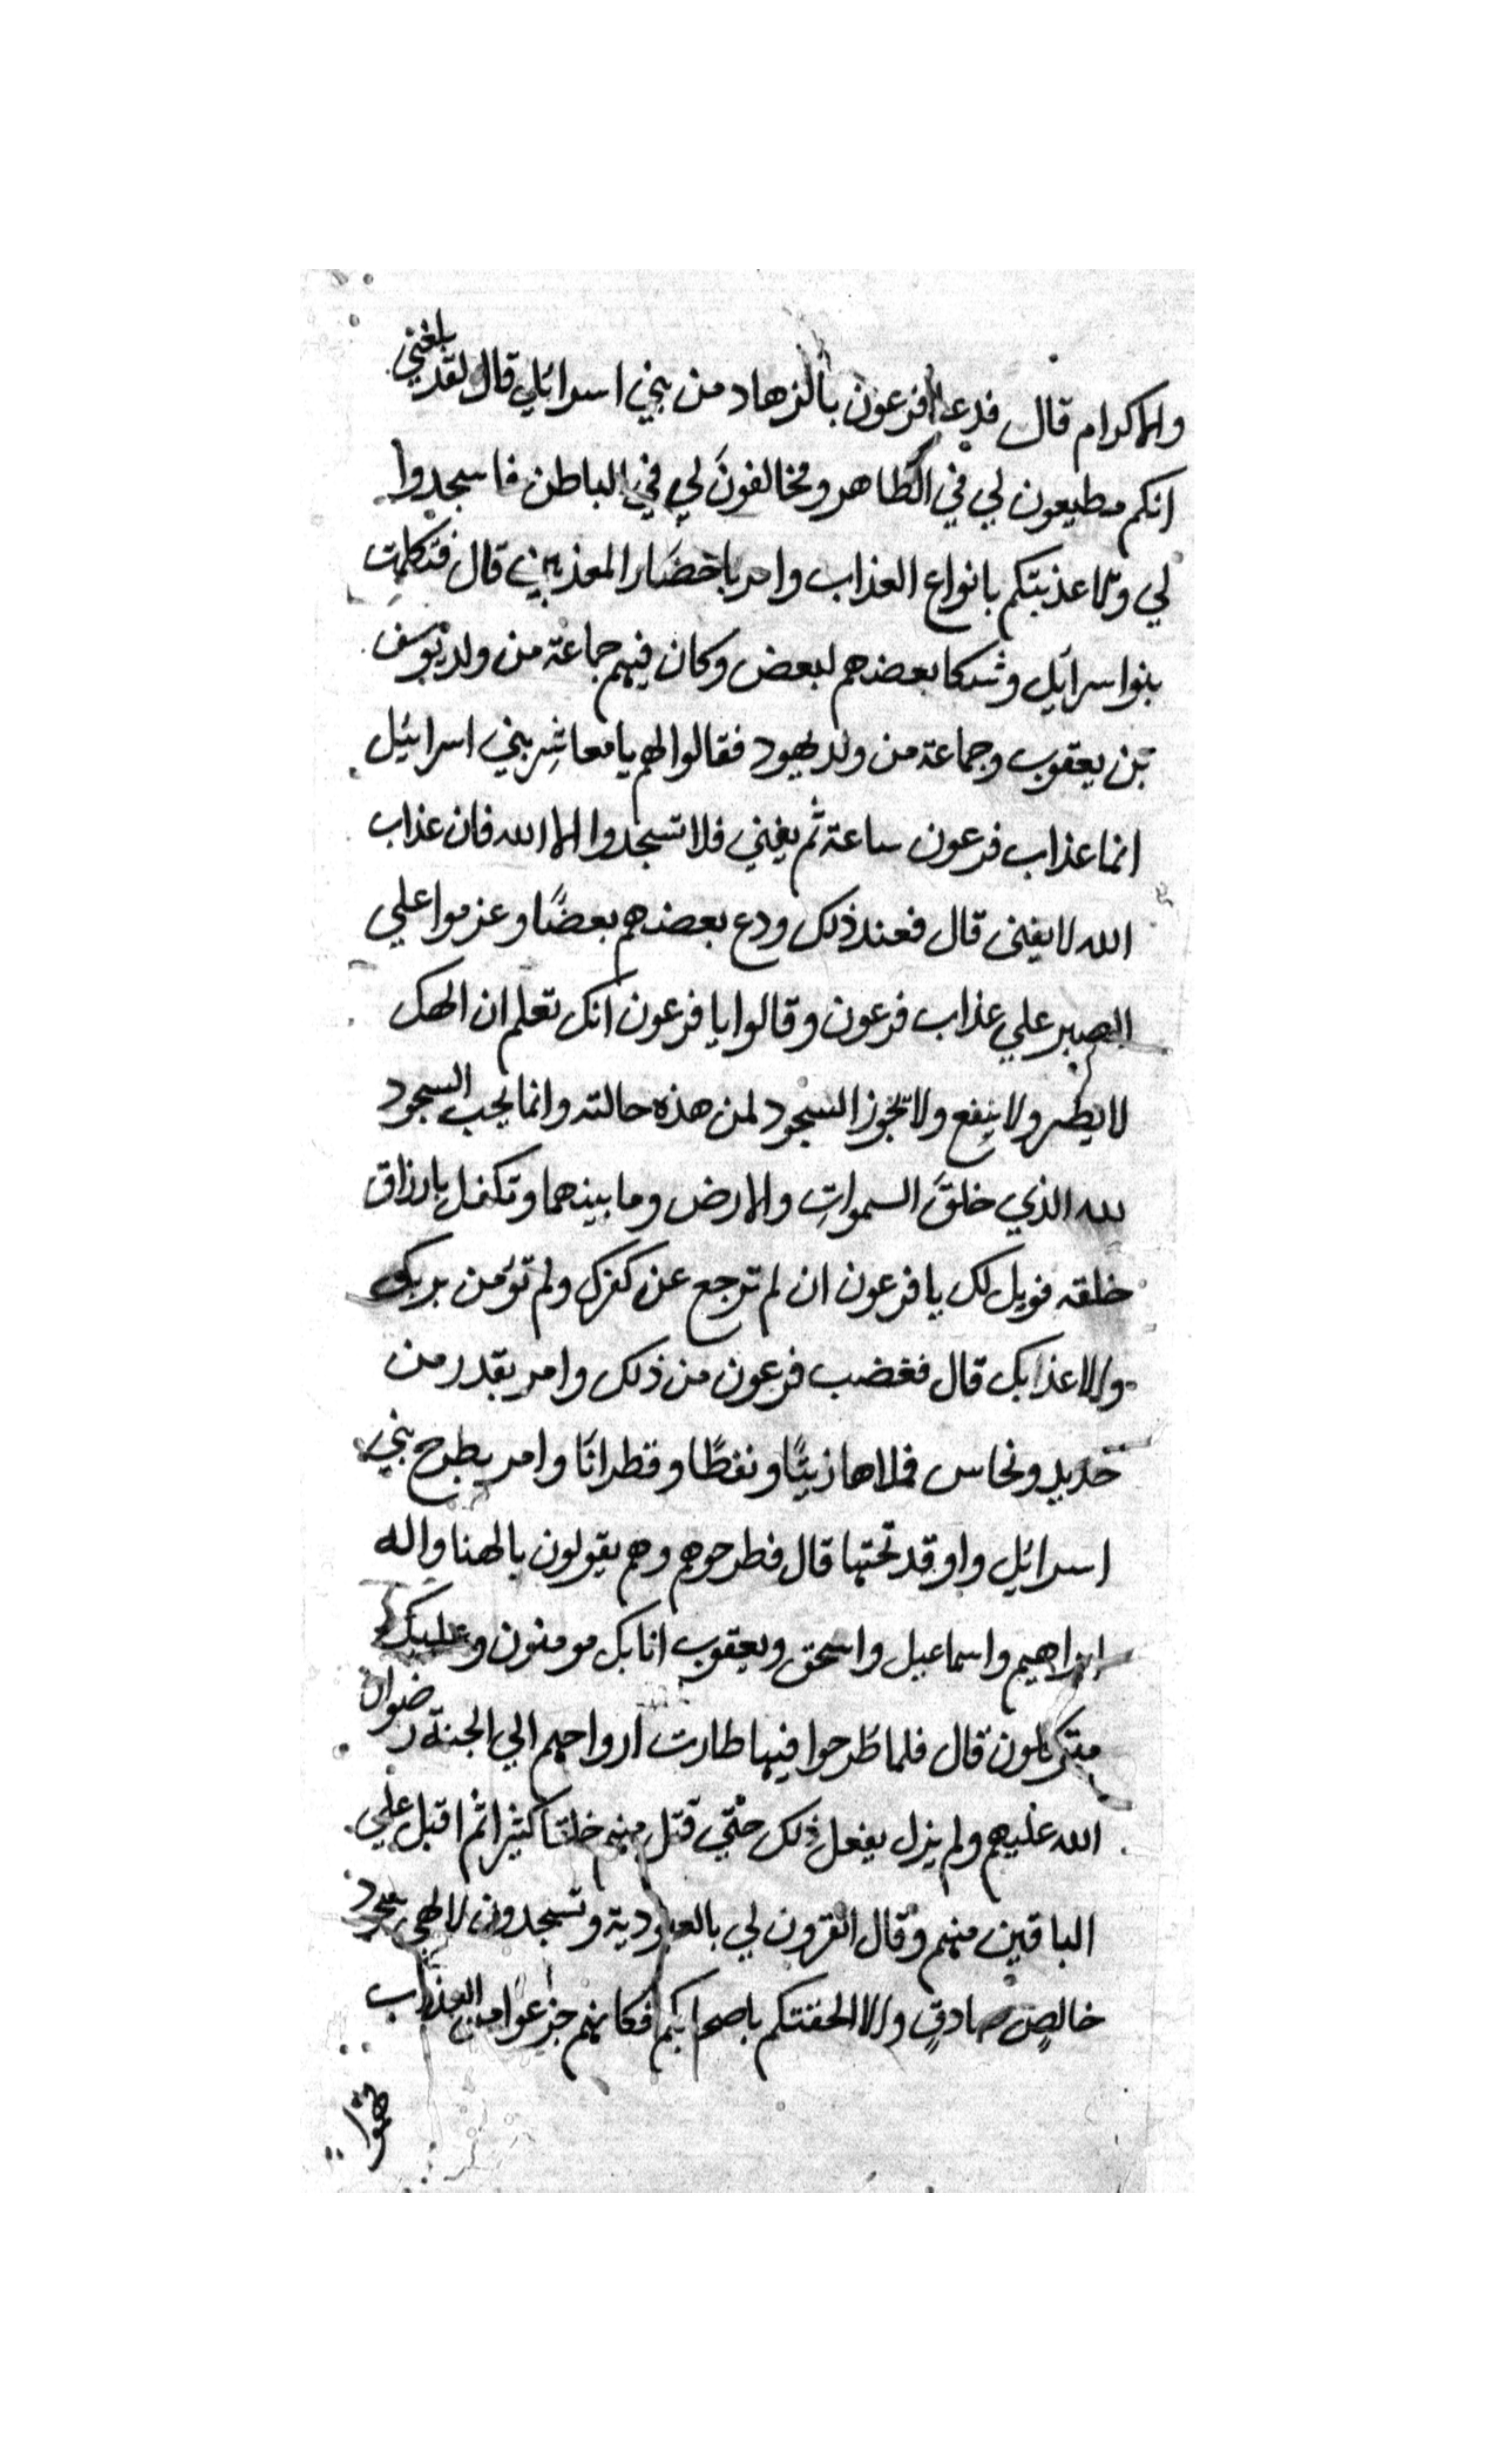 والاكرام قال فدعا فرعون بالزهاد من بني اسرائيل قال لقد بلغني
انكم مطيعون لي في الظاهر ومخالفون لي في الباطن فاسجدوا
لي والا عذبتكم بانواع العذاب وامر باحضار المعذبين قال فتكلمت
بنوا سرائيل وشكا بعضهم لبعض وكان فيهم جماعة من ولد يوسف
بن يعقوب وجماعة من ولد يهود فقالوا لهم يا معاشر بني اسرائيل
انما عذاب فرعون ساعة ثم يفني فلا تسجدوا الا الله فان عذاب
الله لا يفنى قال فعند ذلك ودع بعضهم بعضًا وعزموا علي
الصبر علي عذاب فرعون وقالوا يا فرعون انك تعلم ان الهك
لا يضر ولا ينفع ولا تجوز السجود لمن هذه حالته وانما يجب السجود
لله الذي خلق السموات والارض وما بينهما وتكفل بارزاق
خلقه فويل لك يا فرعون ان لم ترجع عن كفرك ولم تؤمن بربك
والا عذابك قال فغضب فرعون من ذلك وامر بقدر من
حديد ونحاس فملاها زيتًا ونفطًا وقطرانًا وامر بطرح بني
اسرائيل واوقد تحتها قال فطرحوهم وهم يقولون يا الهنا واله
ابراهيم واسماعيل واسحق ويعقوب انا بك مومنون وعليك
متوكلون قال فلما طرحوا فيها طارت ارواحهم الي الجنة رضوان
الله عليهم ولم يزل يفعل ذلك حتي قتل منهم خلقا كثيرا ثم اقبل علي
الباقين منهم وقال اتقرون لي بالعبودية وتسجدون لالهي
خالص صادق والا الحقتكم باصحابكم فكانهم جزعوا من العذاب